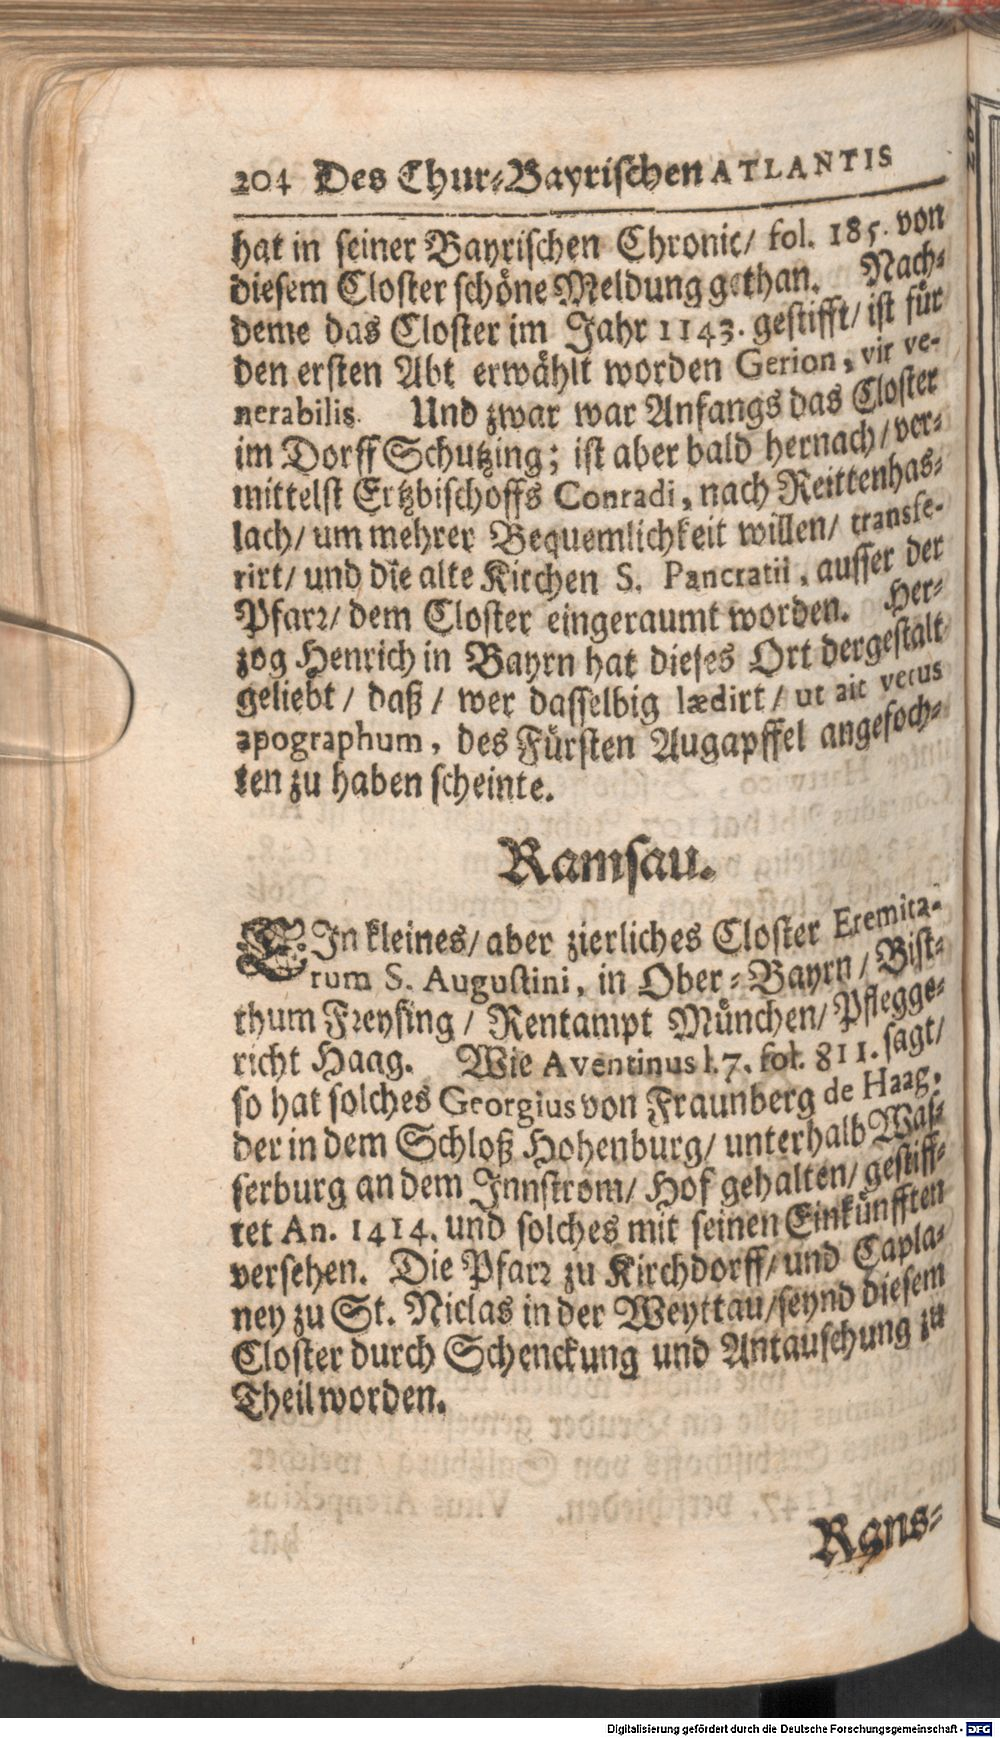 204 Des Chur-Bayrischen ATLANTIS
hat in seiner Bayrischen Chronic/ fol. 185. von
diesem Closter schöne Meldung gethan. Nach-
deme das Closter im Jahr 1143. gestifft/ ist für
den ersten Abt erwählt worden Gerion, vir ve-
nerabilis. Und zwar war Anfangs das Closter
im Dorff Schutzing; ist aber bald hernach/ ver-
mittelst Ertzbischoffs Conradi, nach Reittenhas-
lach/ um mehrer Bequemlichkeit willen/ transfe-
rirt/ und die alte Kirchen S. Pancratii, ausser der
Pfarr/ dem Closter eingeraumt worden. Her-
zog Henrich in Bayrn hat dieses Ort dergestalt
geliebt/ daß/ wer dasselbig lædirt/ ut ait vetus
apographum, des Fürsten Augapffel angefoch-
ten zu haben scheinte.
Ramsau.
EIn kleines/ aber zierliches Closter Eremita-
rum S. Augustini, in Ober-Bayrn/ Bist-
thum Freysing/ Rentampt München/ Pflegge-
richt Haag. Wie Aventinus l. 7. fol. 811. sagt/
so hat solches Georgius von Fraunberg de Haag,
der in dem Schloß Hohenburg/ unterhalb Was-
serburg an dem Innstrom/ Hof gehalten/ gestiff-
tet An. 1414. und solches mit seinen Einkünfften
versehen. Die Pfarr zu Kirchdorff/ und Capla-
ney zu St. Niclas in der Weyttau/ seynd diesem
Closter durch Schenckung und Antauschung zu
Theil worden.
Rans-
Digitalisierung gefördert durch die Deutsche Forschungsgemeinschaft - DFG